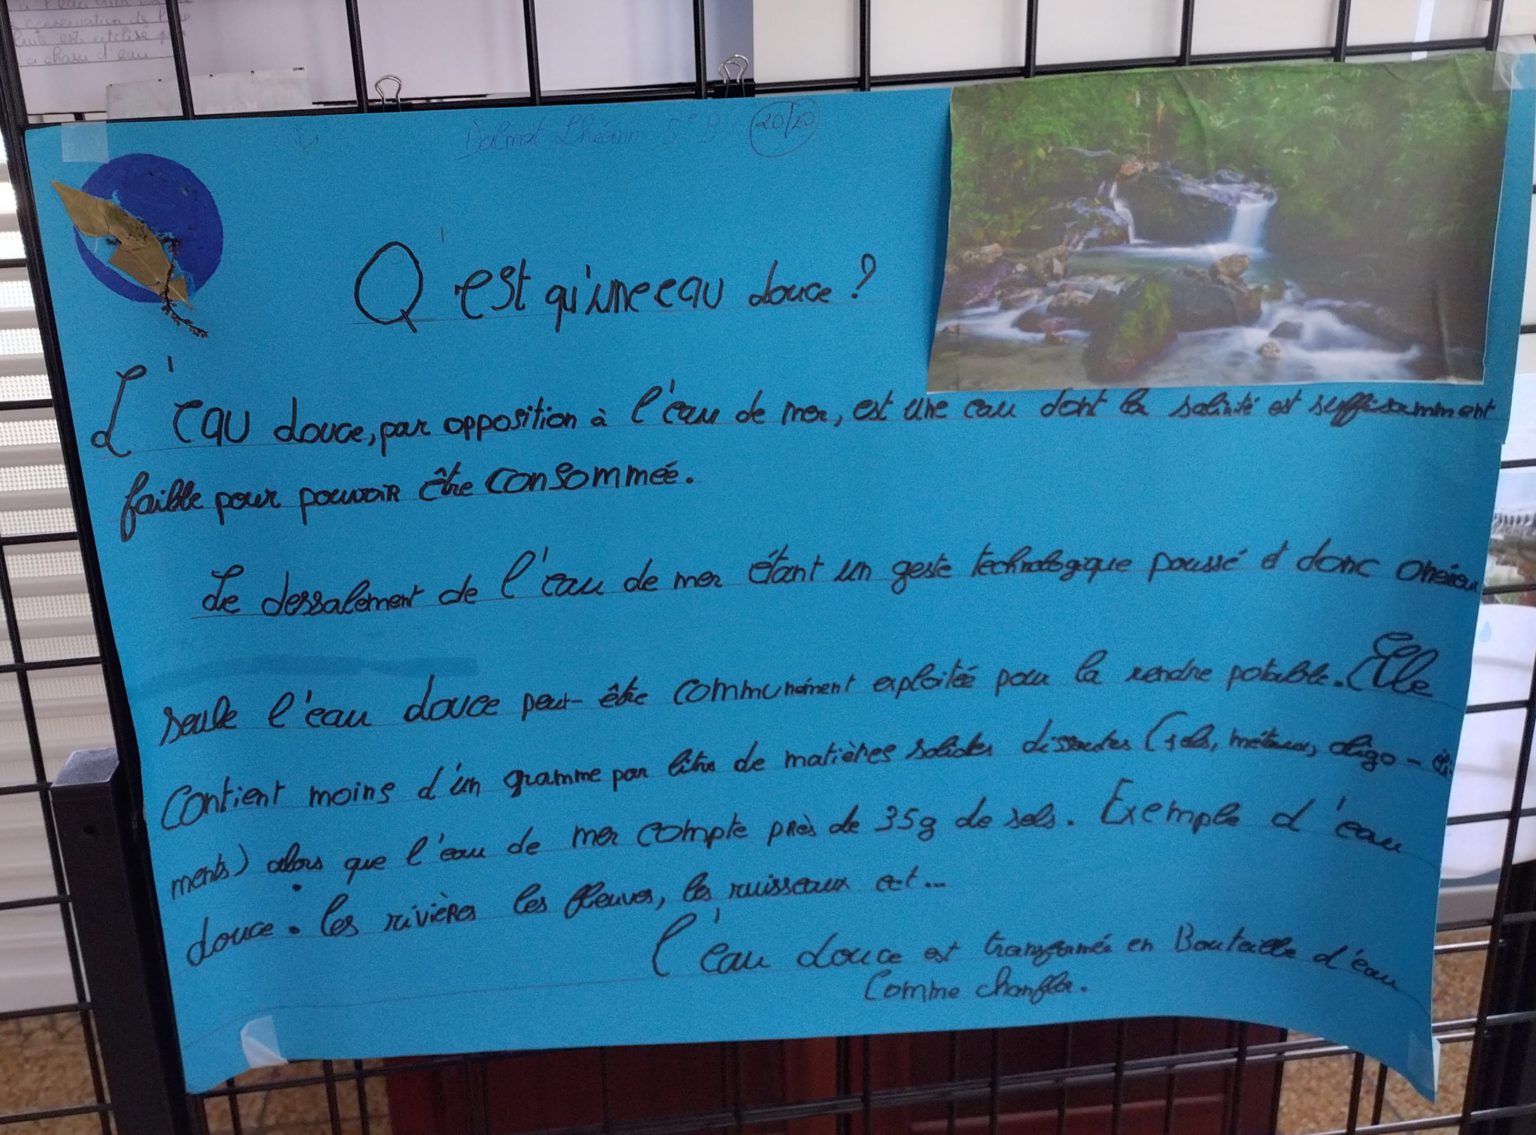 conservation de l'
est utilisé
chasse d'eau
Dalmat 5e B 20/20
Q'est qu'une eau douce ?
L'eau douce, par opposition à l'eau de mer, est une eau dont la salinité est suffisamment
faible pour pouvoir être consommée.
Le dessalement de l'eau de mer étant un geste technologique poussé et donc onéreux
seule l'eau douce peut-être communément exploitée pour la rendre potable. Elle
contient moins d'un gramme par litre de matières solides dissoutes (sels, métaux, oligo-élé
ments) alors que l'eau de mer compte près de 35g de sels. Exemple d'eau
douce : les rivières les fleuves, les ruisseaux ect...
l'eau douce est transformée en Bouteille d'eau
Comme chanflor.